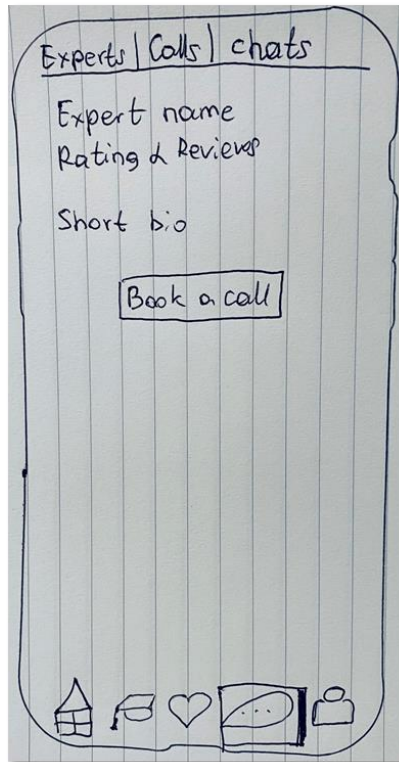 Experts | Calls | chats
Expert name
Rating & Reviews
Short bio
Book a call